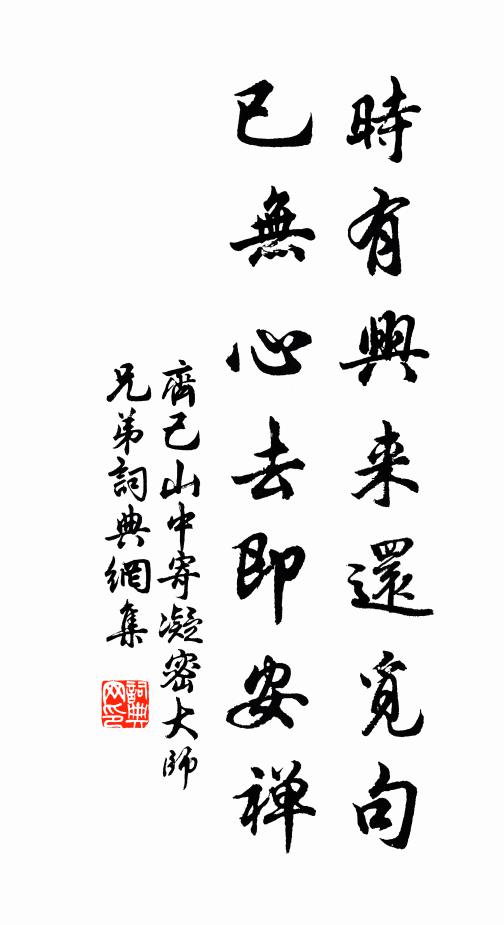 時有興来還覓句
已無心去即安禅
齊己山中寄凝密大師
兄弟詞典網集
詞典
网印